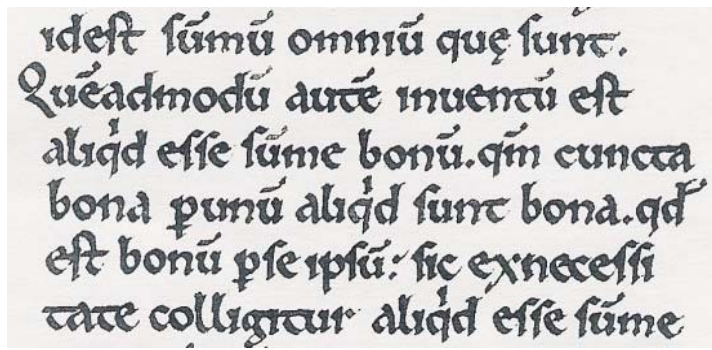 ideſt ſūmū omniū quę ſunt.
Quēadmodū autē inuentū eſt
aliq̍d eſſe ſūme bonū. qm̄ cuncta
bona ꝑunū aliq̍d ſunt bona. qd̄
eſt bonū ꝑſe ipſū: ſic exneceſſi
tate colligitur aliq̍d eſſe ſūme